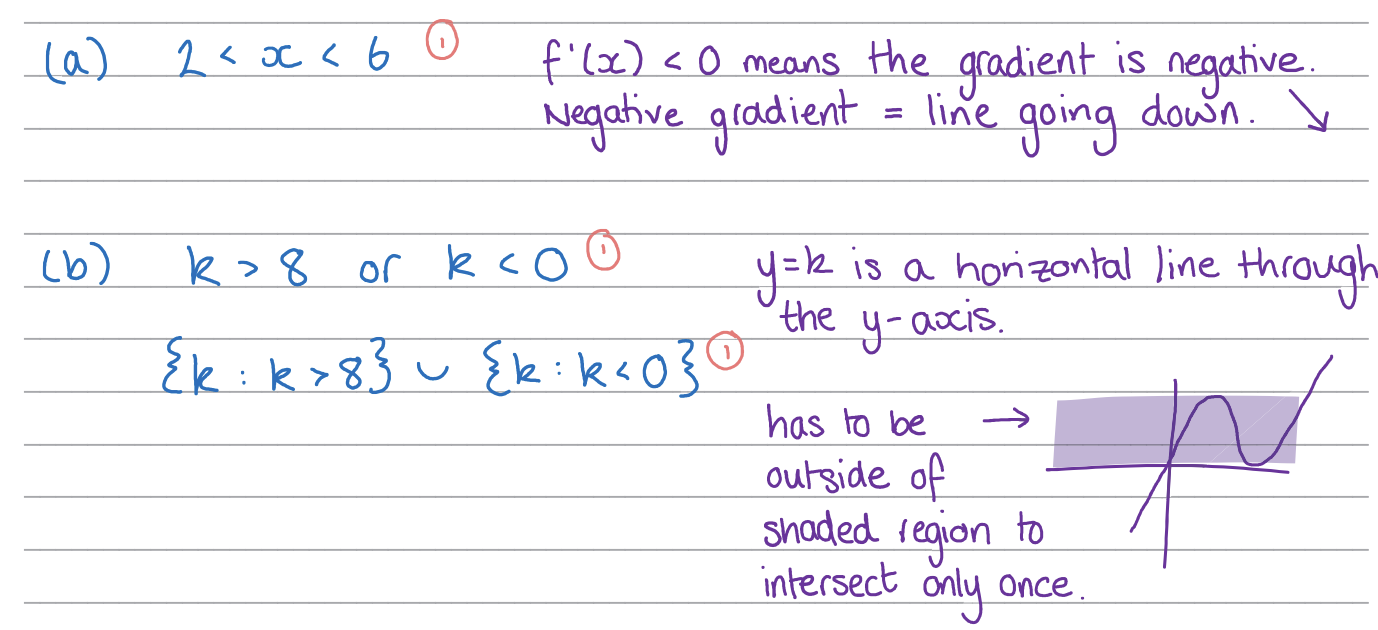 (a) 2 < x < 6 ① f'(x) < 0 means the gradient is negative.
Negative gradient = line going down.
(b) k > 8 or k < 0 ① y=k is a horizontal line through
the y-axis.
{k : k > 8} ∪ {k : k < 0} ①
has to be
outside of
shaded region to
intersect only once.